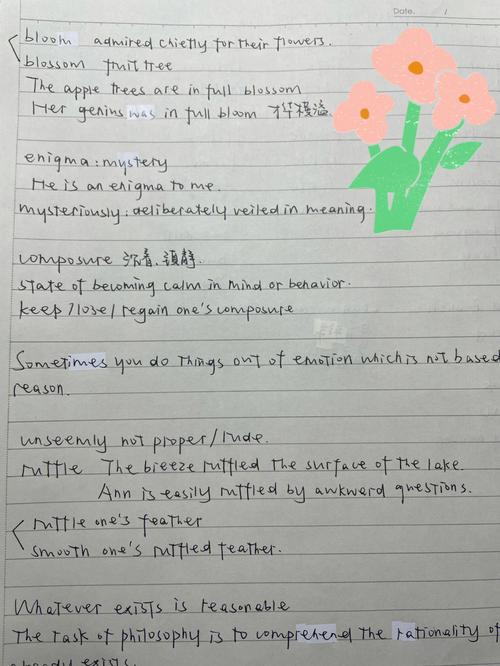 Date. /
bloom admired chiefly for their flowers.
blossom fruit tree
The apple trees are in full blossom
Her genius was in full bloom 才华横溢
enigma: mystery
He is an enigma to me.
mysteriously: deliberately veiled in meaning.
composure 沉着、镇静.
state of becoming calm in mind or behavior.
keep / lose / regain one's composure
Sometimes you do things out of emotion which is not based
reason.
unseemly not proper / rude.
ruffle The breeze ruffled the surface of the lake.
Ann is easily ruffled by awkward questions.
ruffle one's feather
smooth one's ruffled feather.
Whatever exists is reasonable
The task of philosophy is to comprehend the rationality of
already exists.